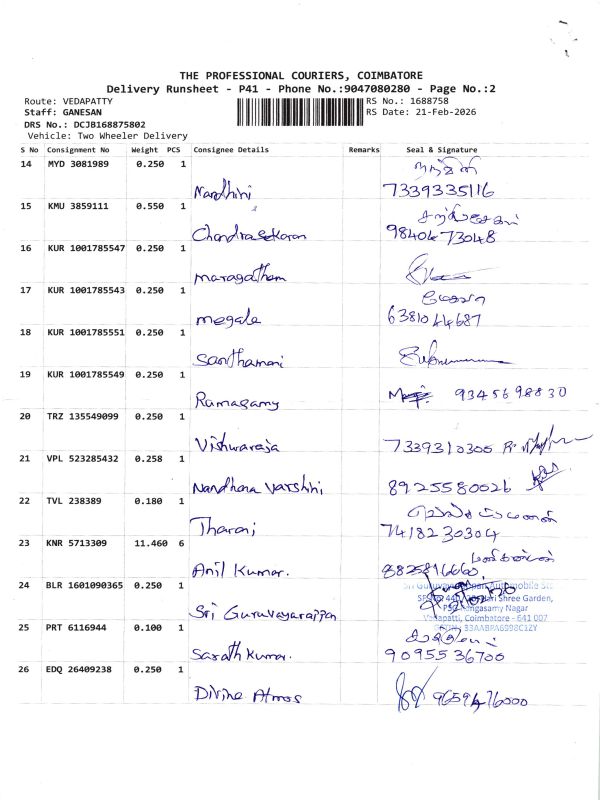 THE PROFESSIONAL COURIERS, COIMBATORE
Delivery Runsheet - P41 - Phone No.:9047080280 - Page No.:2
Route: VEDAPATTY
RS No.: 1688758
Staff: GANESAN
RS Date: 21-Feb-2026
DRS No.: DCJB168875802
Vehicle: Two Wheeler Delivery
S No Consignment No Weight PCS Consignee Details Remarks Seal & Signature
14 MYD 3081989 0.250 1
Nandhini 7339335116
15 KMU 3859111 0.550 1
Chandrasekaran 9840473048
16 KUR 1001785547 0.250 1
maragatham
17 KUR 1001785543 0.250 1
megala 6381044687
18 KUR 1001785551 0.250 1
Santhamani
19 KUR 1001785549 0.250 1
Ramasamy 9345698830
20 TRZ 135549099 0.250 1
Vishwaraja 7339310305
21 VPL 523285432 0.258 1
Nandhana Varshini 8925580026
22 TVL 238389 0.180 1
Tharani 7418230304
23 KNR 5713309 11.460 6
Anil Kumar.
24 BLR 1601090365 0.250 1
Automobile
Shree Garden,
Sri Guruvayarappan
Nagar
Coimbatore - 641 007
25 PRT 6116944 0.100 1
Sarath Kumar. 9095536700
26 EDQ 26409238 0.250 1
Divine Atmos 9659476000